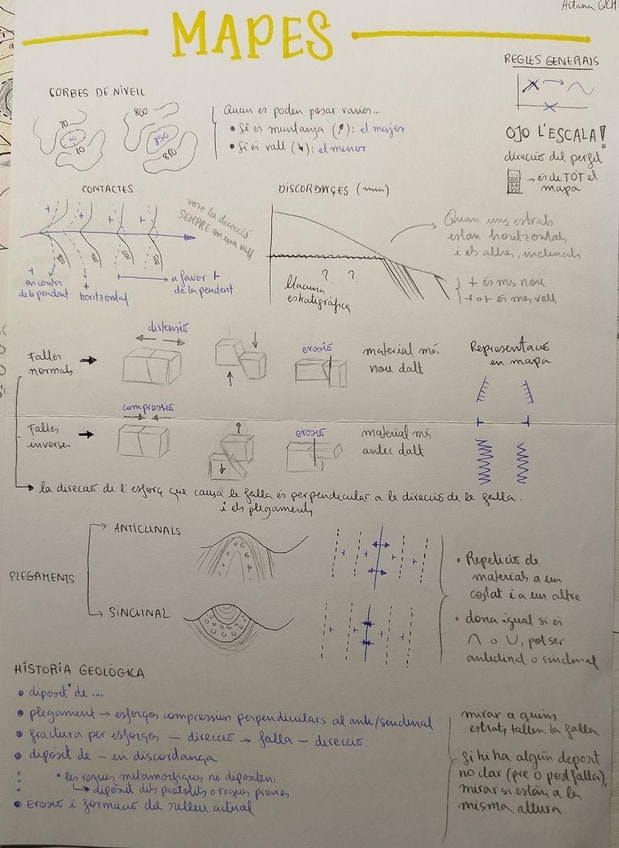 Aitana
MAPES
REGLES GENERALS
OJO L'ESCALA!
direcció del perfil
→ és de TOT el
mapa
CORBES DE NIVELL
70
10
800
850
810
Quan es poden posar varies...
• Si és muntanya ( ): el major
• Si és vall ( ): el menor
CONTACTES
vore la direcció
SEMPRE en una vall
+
en contra
de la pendent
+
horitzontal
a favor
de la pendent
DISCORDANÇES
? ?
llacuna
estratigràfica
Quan uns estrats
estan horitzontals
i els altres, inclinats
+ és més nou
és més vell
Falles
normals
distensió
erosió
material més
nou dalt
Representació
en mapa
Falles
inverses
compressió
erosió
material més
antic dalt
la direcció de l'esforç que causà la falla és perpendicular a la direcció de la falla.
i els plegaments
PLEGAMENTS
ANTICLINALS
SINCLINAL
• Repetició de
materials a un
costat i a un altre
• dona igual si és
∩ o ∪, pot ser
anticlinal o sinclinal
HISTORIA GEOLÒGICA
• dipòsit de ...
• plegament → esforços compressius perpendiculars al anti/sinclinal
• fractura per esforços – direcció → falla – direcció.
• dipòsit de – en discordança
• les roques metamòrfiques no depositen:
↳ dipòsit dels protolits o roques prèvies
• Erosió i formació del relleu actual
mirar a quins
estrats tallen la falla
Si hi ha algún deposit
no clar (pre o postfalla),
mirar si están a la
misma altura.